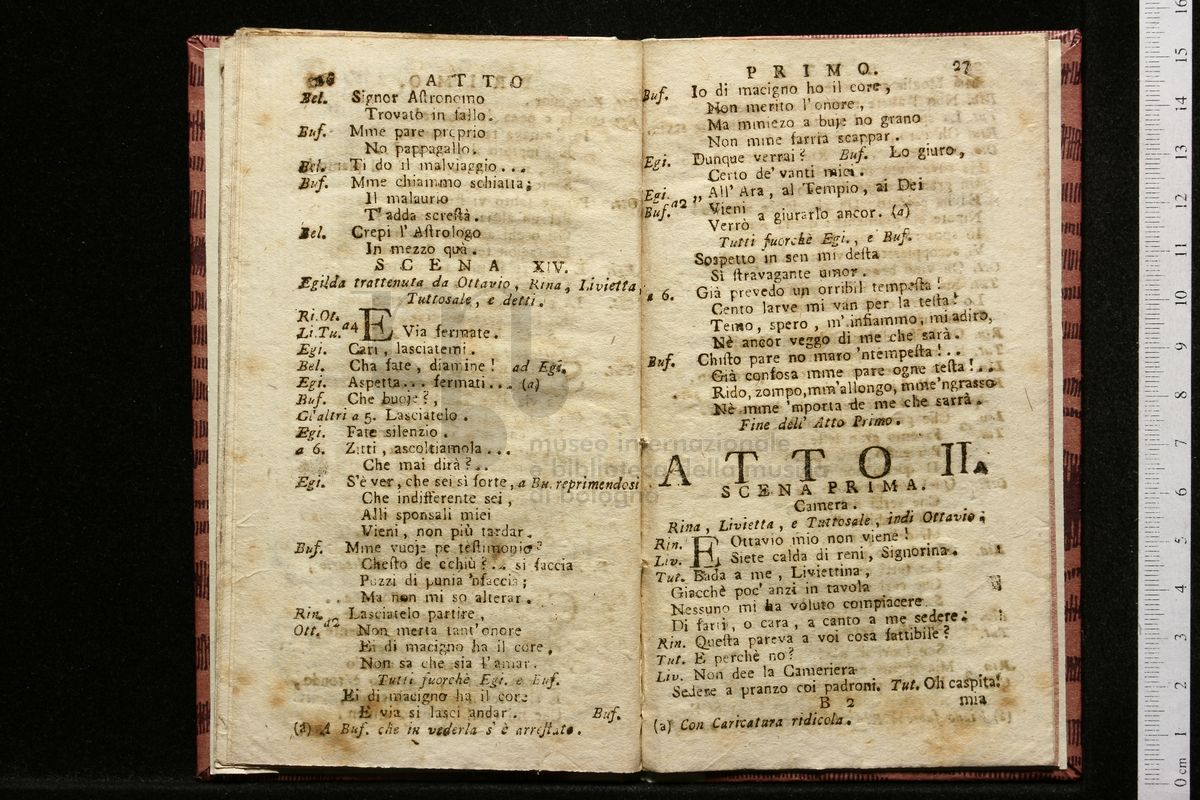 26 ATTO
Bel. Signor Aſtronomo
Trovato in fallo.
Buf. Mme pare proprio
No pappagallo.
Bel. Ti do il malviaggio...
Buf. Mme chiammo schiatta;
Il malaurio
T'adda screſtà.
Bel. Crepi l'Aſtrologo
In mezzo quà.
SCENA XIV.
Egilda trattenuta da Ottavio, Rina, Livietta,
Tuttosale, e detti.
Ri.Ot.
Li.Tu. a4 E Via fermate.
Egi. Cari, lasciatemi.
Bel. Cha fate, diamine! ad Egi.
Egi. Aspetta... fermati... (a)
Buf. Che buoje?,
Gl'altri a 5. Lasciatelo.
Egi. Fate silenzio.
a 6. Zitti, ascoltiamola...
Che mai dirà?..
Egi. S'è ver, che sei sì forte, a Bu. reprimendosi
Che indifferente sei,
Alli sponsali miei
Vieni, non più tardar.
Buf. Mme vuoje pe teſtimonio?
Cheſto de cchiù?... si faccia
Pozzi di punia 'nfaccia;
Ma non mi so alterar.
Rin. Lasciatelo partire,
Ott. a2 Non merta tant'onore
Ei di macigno ha il core,
Non sa che sia l'amar.
Tutti fuorchè Egi. e Buf.
Ei di macigno ha il core
E via si lasci andar. Buf.
(a) A Buf. che in vederla s'è arreſtato.
PRIMO. 27
Buf. Io di macigno ho il core,
Non merito l'onore,
Ma mmiezo a buje no grano
Non mme farria scappar.
Egi. Dunque verrai? Buf. Lo giuro,
Certo de' vanti miei.
Egi. a2 „ All'Ara, al Tempio, ai Dei
Buf. Vieni
Verrò a giurarlo ancor. (a)
Tutti fuorchè Egi., e Buf.
Sospetto in sen mi deſta
Sì ſtravagante umor.
a 6. Già prevedo un orribil tempeſta!
Cento larve mi van per la teſta!
Temo, spero, m'infiammo, mi adiro,
Nè ancor veggo di me che sarà.
Buf. Chiſto pare no maro 'ntempeſta!..
Già confosa mme pare ogne teſta!..
Rido, zompo, mm'allongo, mme'ngrasso
Nè mme 'mporta de me che sarrà.
Fine dell'Atto Primo.
ATTO II.
SCENA PRIMA.
Camera.
Rina, Livietta, e Tuttosale, indi Ottavio.
Rin. E Ottavio mio non viene!
Liv. Siete calda di reni, Signorina.
Tut. Bada a me, Liviettina,
Giacchè poc'anzi in tavola
Nessuno mi ha voluto compiacere
Di farti, o cara, a canto a me sedere.
Rin. Queſta pareva a voi cosa fattibile?
Tut. E perchè no?
Liv. Non dee la Cameriera
Sedere a pranzo coi padroni. Tut. Oh caspita!
B 2 mia
(a) Con Caricatura ridicola.
museo internazionale
e biblioteca della musica
di bologna
0 cm 1 2 3 4 5 6 7 8 9 10 11 12 13 14 15 16